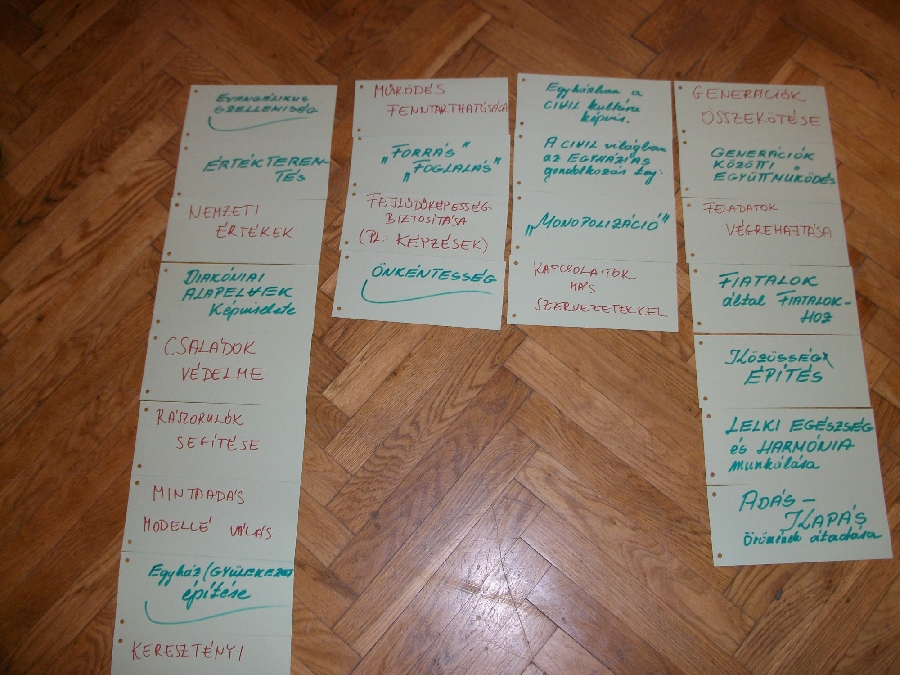 EVANGÉLIKUS
SZELLEMISÉG
ÉRTÉKTEREM-
TÉS
NEMZETI
ÉRTÉKEK
DIAKÓNIAI
ALAPELVEK
Képviselete
CSALÁDOK
VÉDELME
RÁSZORULÓK
SEGÍTÉSE
MINTAADÁS
MODELLÉ VÁLÁS
Egyház/GYÜLEKEZET
építése
KERESZTÉNYI
MŰKÖDÉS
FENNTARTHATÓSÁGA
"FORRÁS"
"FOGLALÁS"
FEJLŐDŐKÉPESSÉG
BIZTOSÍTÁSA
(PL: KÉPZÉSEK)
ÖNKÉNTESSÉG
Egyházban a
CIVIL kultúra
képvis.
A CIVIL világban
az EGYHÁZIAS
gondolkozás
"MONOPOLIZÁCIÓ"
KAPCSOLATOK
MÁS
SZERVEZETEKKEL
GENERÁCIÓK
ÖSSZEKÖTÉSE
GENERÁCIÓK
KÖZÖTTI
EGYÜTTMŰKÖDÉS
FELADATOK
VÉGREHAJTÁSA
FIATALOK
által FIATALOK-
HOZ
KÖZÖSSÉG
ÉPÍTÉS
LELKI EGÉSZSÉG
és HARMÓNIA
munkálása
ADÁS-
KAPÁS
örömének átadása